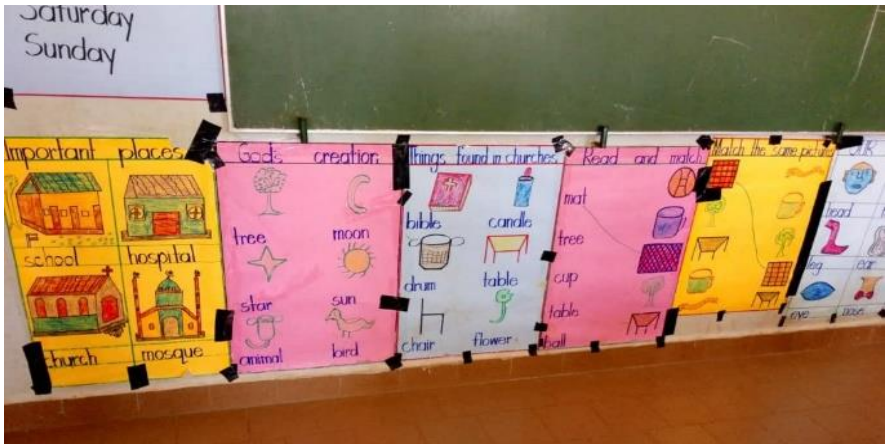 Saturday
Sunday
Important places
school hospital
church mosque
God's creation
tree moon
star sun
animal bird
Things found in churches
bible candle
drum table
chair flower
Read and match
mat
tree
cup
table
ball
Match the same picture
head
leg ear
eye nose